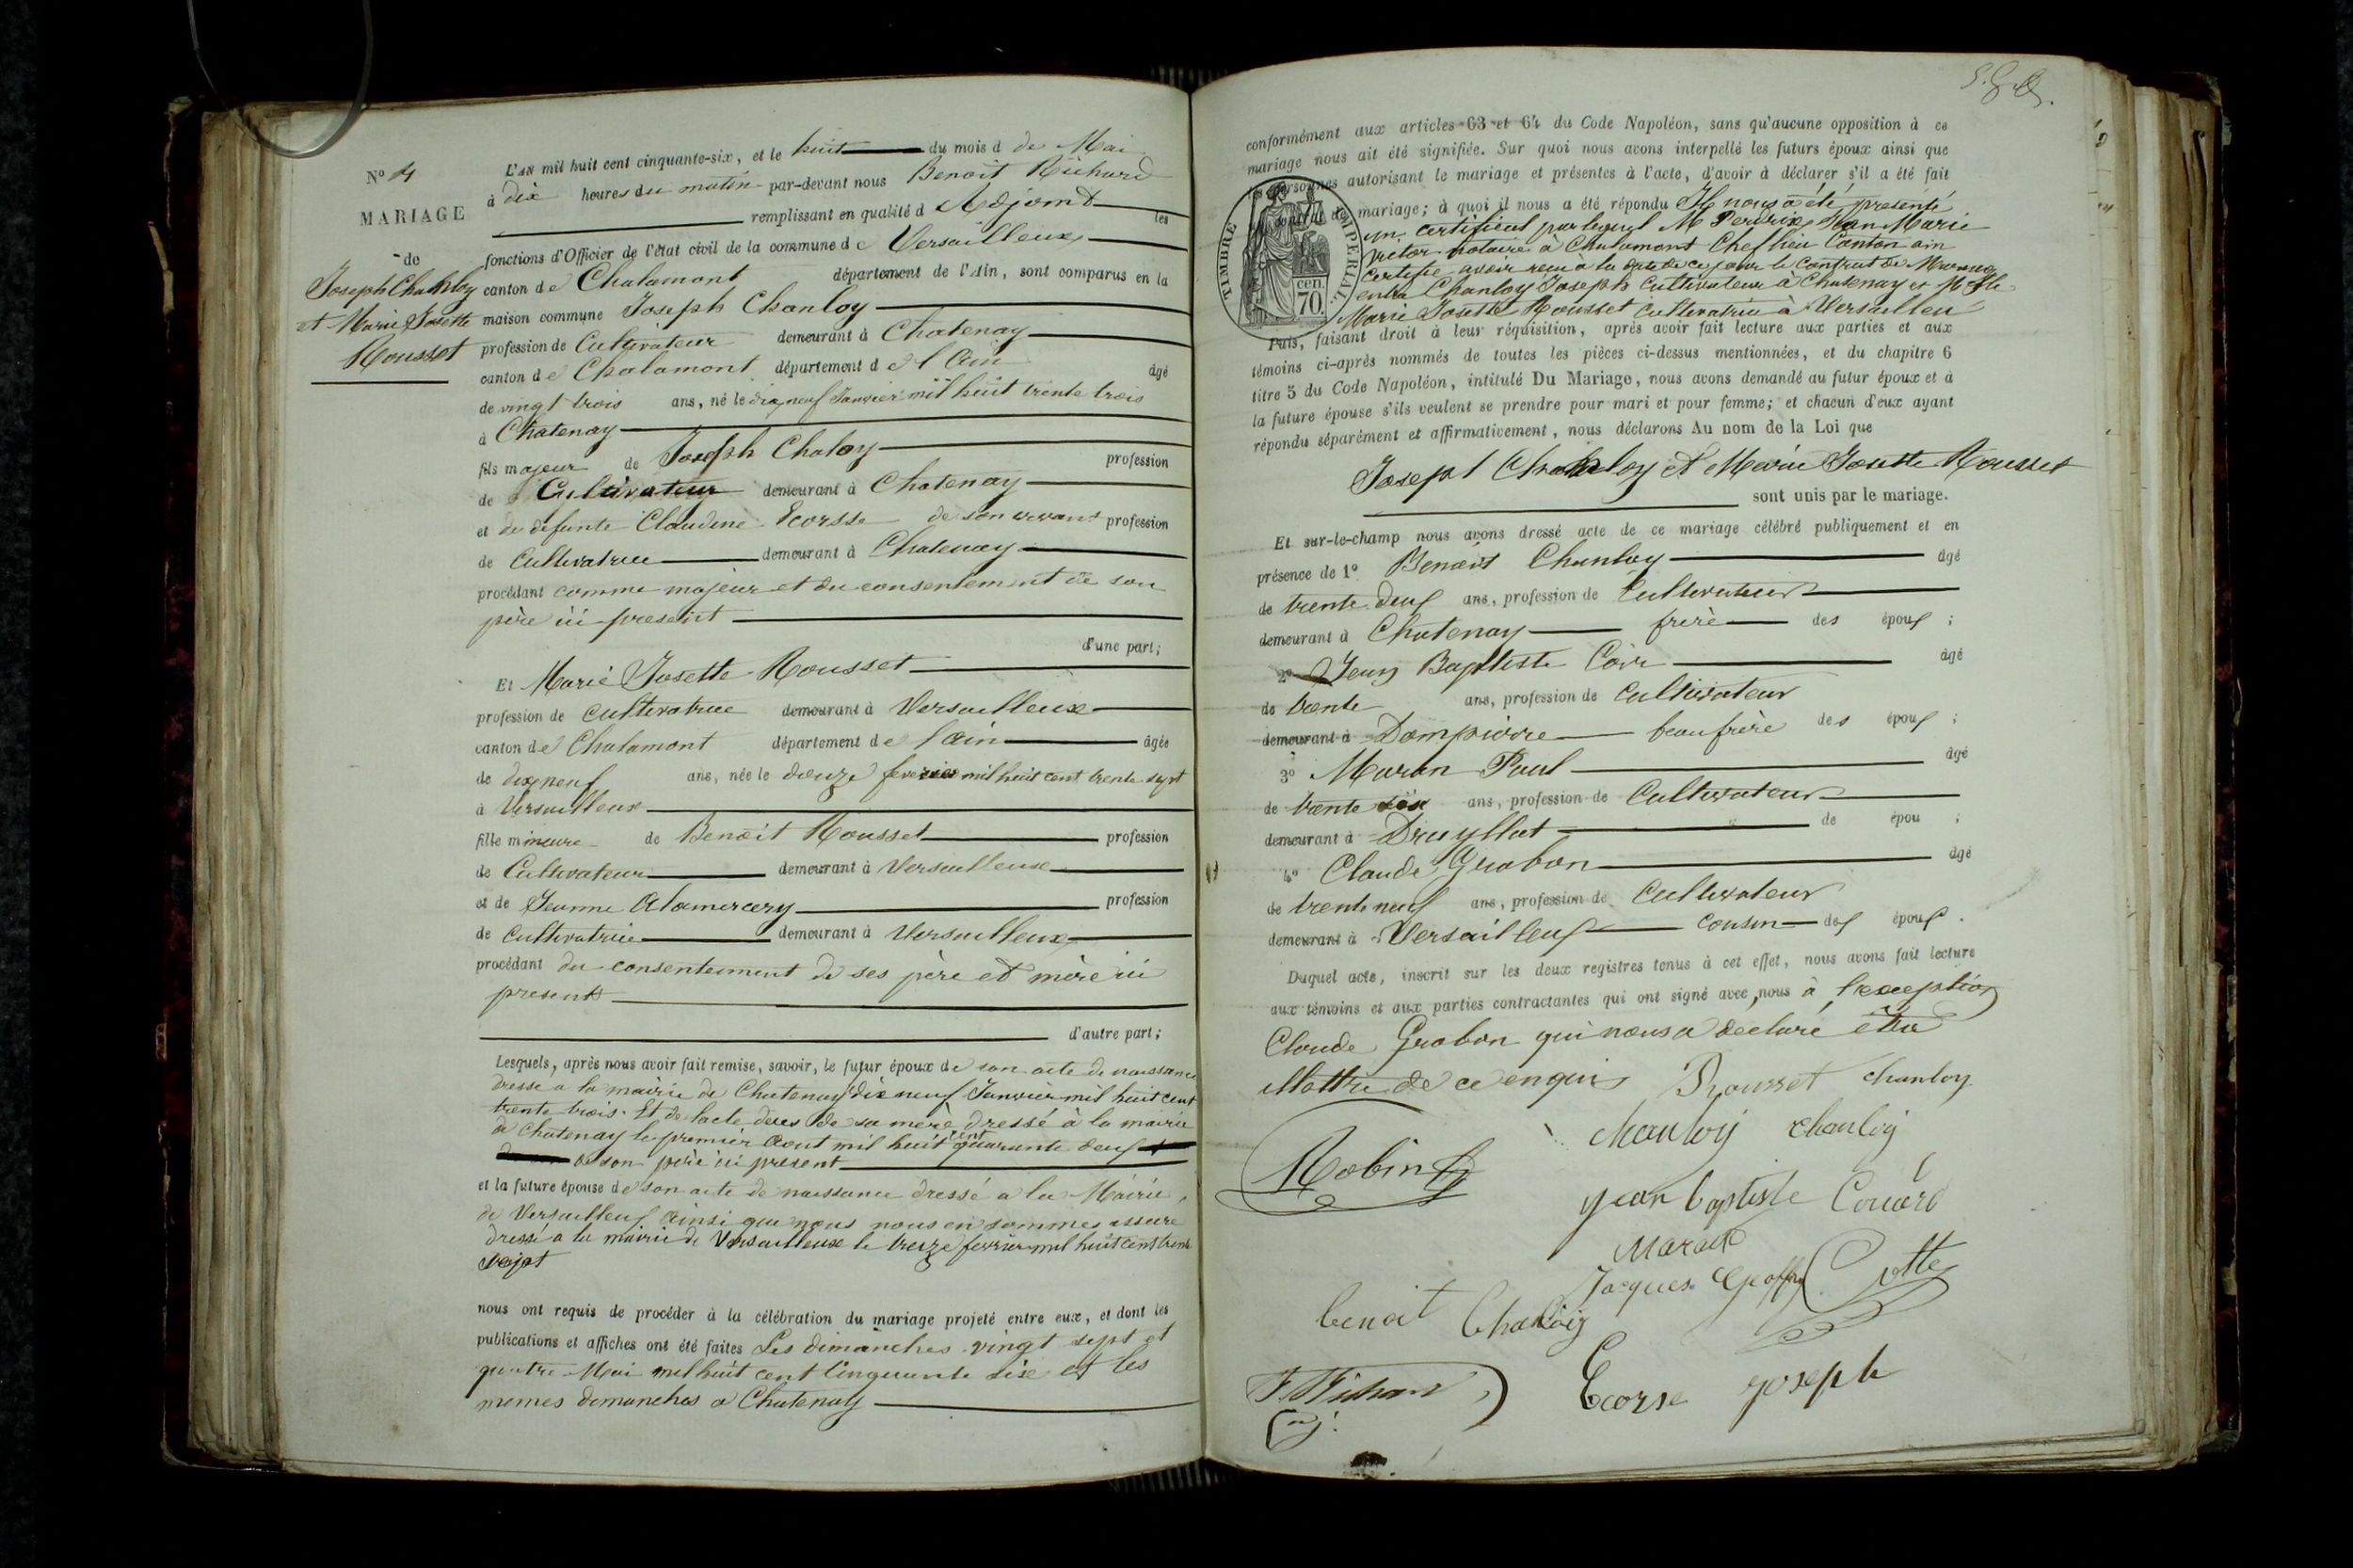 Nº 4
MARIAGE
de
Joseph Chanloy
et Marie Josette
Rousset
L'AN mil huit cent cinquante-six, et le huit du mois d de Mai
à dix heures du matin par-devant nous Benoit Richard
remplissant en qualité d Adjoint les
fonctions d'Officier de l'état civil de la commune de Versailleux
canton de Chalamont département de l'Ain, sont comparus en la
maison commune Joseph Chanloy
profession de Cultivateur demeurant à Chatenay
canton de Chalamont département de l'Ain âgé
de vingt trois ans, né le dix neuf Janvier mil huit trente trois
à Chatenay
fils majeur de Joseph Chaloy profession
de Cultivateur demeurant à Chatenay
et de defunte Claudine Ecorsse de son vivant profession
de Cultivatrice demeurant à Chatenay
procédant comme majeur et du consentement de son
père ici present
d'une part;
Et Marie Josette Rousset
profession de cultivatrice demeurant à Versailleux
canton de Chalamont département de l'ain âgée
de dix neuf ans, née le douze fevrier mil huit cent trente sept
à Versailleux
fille mineure de Benoit Rousset profession
de Cultivateur demeurant à Versailleux
et de Jeanne Alamercery profession
de Cultivatrice demeurant à Versailleux
procédant du consentement de ses père et mère ici
presents
d'autre part;
Lesquels, après nous avoir fait remise, savoir, le futur époux de son acte de naissance
dressé a la mairie de Chatenay dix neuf Janvier mil huit cent
trente trois. Et de lacte deces de sa mère dressé à la mairie
de Chatenay le premier Aout mil huit cent quarante deux
de son père ici present
et la future épouse de son acte de naissance dressé a la Mairie
de Versailleux ainsi que nous nous en sommes assure
dressé a la mairie de Versailleux le treize fevrier mil huit cent trente
sept
nous ont requis de procéder à la célébration du mariage projeté entre eux, et dont les
publications et affiches ont été faites Les dimanches vingt sept et
quatre Mai mil huit cent cinquante six et les
memes dimanches a Chatenay
conformément aux articles 63 et 64 du Code Napoléon, sans qu'aucune opposition à ce
mariage nous ait été signifiée. Sur quoi nous avons interpellé les futurs époux ainsi que
les personnes autorisant le mariage et présentes à l'acte, d'avoir à déclarer s'il a été fait
contrat de mariage; à quoi il nous a été répondu Il nous a été presenté
un certificat par lequel M Perdrix Jean Marie
victor notaire à Chalamont Chef lieu Canton ain
certifie avoir recu à la date de ce jour le contrat de Mariage
entre Chanloy Joseph Cultivateur à Chatenay et Mlle
Marie Josette Rousset Cultivatrice à Versailleu
TIMBRE IMPERIAL
70 cen.
Puis, faisant droit à leur réquisition, après avoir fait lecture aux parties et aux
témoins ci-après nommés de toutes les pièces ci-dessus mentionnées, et du chapitre 6
titre 5 du Code Napoléon, intitulé Du Mariage, nous avons demandé au futur époux et à
la future épouse s'ils veulent se prendre pour mari et pour femme; et chacun d'eux ayant
répondu séparément et affirmativement, nous déclarons Au nom de la Loi que
Joseph Chanloy et Marie Josette Rousset
sont unis par le mariage.
Et sur-le-champ nous avons dressé acte de ce mariage célébré publiquement et en
présence de 1º Benoit Chanloy âgé
de trente deux ans, profession de Cultivateur
demeurant à Chatenay frère des époux ;
2º Jean Baptiste Coir âgé
de trente ans, profession de Cultivateur
demeurant à Dompierre beau frère des époux ;
3º Maran Paul âgé
de trente six ans, profession de Cultivateur
demeurant à Druyllat de épou ;
4º Claude Grabon âgé
de trente neuf ans, profession de Cultivateur
demeurant à Versailleux cousin des époux .
Duquel acte, inscrit sur les deux registres tenus à cet effet, nous avons fait lecture
aux témoins et aux parties contractantes qui ont signé avec nous à l'exception
Claude Grabon qui nous a declaré être
illettré de ce enquis
Rousset chanloy
chanloy chanloy
Robin
jean baptiste Couard
Maran
Jacques Geoffray Cotte
benoit Chanloy
F. Richard
adj.
Ecorse joseph